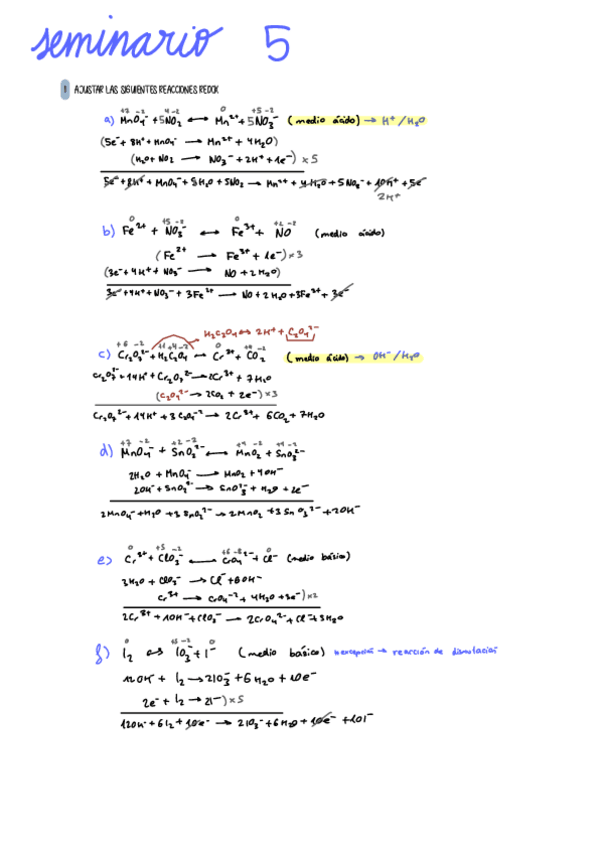 seminario 5
1 AJUSTAR LAS SIGUIENTES REACCIONES REDOX
+7 -2 4 -2 0 +5 -2
a) MnO4⁻ + 5NO2 ⟷ Mn²⁺ + 5NO3⁻ (medio ácido) → H⁺/H2O
(5e⁻ + 8H⁺ + MnO4⁻ → Mn²⁺ + 4H2O)
(H2O + NO2 → NO3⁻ + 2H⁺ + 1e⁻) x5
5e⁻ + 8H⁺ + MnO4⁻ + 5H2O + 5NO2 → Mn²⁺ + 4H2O + 5NO3⁻ + 10H⁺ + 5e⁻
2H⁺
0 +5 -2 0 +2 -2
b) Fe²⁺ + NO3⁻ ⟷ Fe³⁺ + NO (medio ácido)
(Fe²⁺ → Fe³⁺ + 1e⁻) x3
(3e⁻ + 4H⁺ + NO3⁻ → NO + 2H2O)
3e⁻ + 4H⁺ + NO3⁻ + 3Fe²⁺ → NO + 2H2O + 3Fe³⁺ + 3e⁻
H2C2O4 ⟷ 2H⁺ + C2O4²⁻
+6 -2 +1 +4 -2 0
c) Cr2O7²⁻ + H2C2O4 ⟷ Cr³⁺ + CO2 (medio ácido) → OH⁻/H2O
+ 14H⁺ + Cr2O7²⁻ → 2Cr³⁺ + 7H2O
(C2O4²⁻ → 2CO2 + 2e⁻) x3
Cr2O7²⁻ + 14H⁺ + 3C2O4⁻² → 2Cr³⁺ + 6CO2 + 7H2O
+7 -2 +2 -2 +4 -2 +4 -2
d) MnO4⁻ + SnO2²⁻ ⟷ MnO2 + SnO3²⁻
2H2O + MnO4⁻ → MnO2 + 4OH⁻
2OH⁻ + SnO2²⁻ → SnO3²⁻ + H2O + 2e⁻
2MnO4⁻ + H2O + 3SnO2²⁻ → 2MnO2 + 3SnO3²⁻ + 2OH⁻
0 +5 -2 +6 -2 0
e) Cr³⁺ + ClO3⁻ ⟷ CrO4²⁻ + Cl⁻ (medio básico)
3H2O + ClO3⁻ → Cl⁻ + 6OH⁻
Cr³⁺ → CrO4⁻² + 4H2O + 3e⁻) x2
2Cr³⁺ + 10H⁻ + ClO3⁻ → 2CrO4²⁻ + Cl⁻ + 5H2O
0 +5 -2 0
f) I2 ⟷ IO3⁻ + I⁻ (medio básico) → reacción de dismutación
12OH⁻ + I2 → 2IO3⁻ + 6H2O + 10e⁻
2e⁻ + I2 → 2I⁻) x5
12OH⁻ + 6I2 + 10e⁻ → 2IO3⁻ + 6H2O + 10e⁻ + 10I⁻